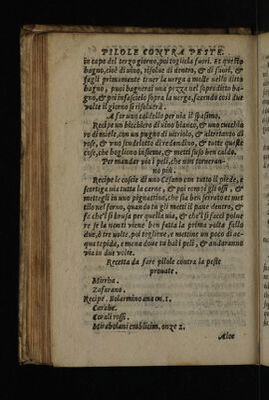 PILOLE CONTRA PESTE.
in capo del terzo giorno, poi togliela fuori. Et questo
bagno, cioè di uino, risolue di dentro, & di fuori, &
fagli primamente tener la uerga a molle nello ditto
bagno, puoi bagnerai una pezza nel sopra ditto ba-
gno, & poi infasciela sopra la uerga, facendo così due
uolte il giorno si risoluerà.
A far uno castello per uia il spasimo.
Recipe un bicchiero di uino bianco, & uno cucchia
ro di miele, con un pugno di nitriolo, & altretanto di
rose, & uno sindeletto di redandino, & tutte queste
cose, che bogliano insieme, & metti suso ben caldo.
Per mandar uia i peli, che non torneran-
no più.
Recipe le coscie di uno Cesano con tutto il piede, e
scortiga uia tutta la carne, & poi rompi gli ossi, &
mettegli in uno pignattino, che sia ben serrato et met
tilo nel forno, quando tu gli metti il pane dentro, &
fa che'l si brusa per quella uia, & che'l si facci poluere
re se la nenti uiene ben fatta la prima uolta falla
due, ò tre uolte, poi togliene, e mettine un poco di ac-
qua tepida, e mena doue tu hai i peli, & andaranno
uia in due uolte.
Recetta da fare pilole contra la peste
prouate.
Mirrha.
Zafarano.
Recipe. Bolarmino ana on. 1.
Carabe.
Corali rossi.
Mirabolani emblicim. onze 2.
Aloe